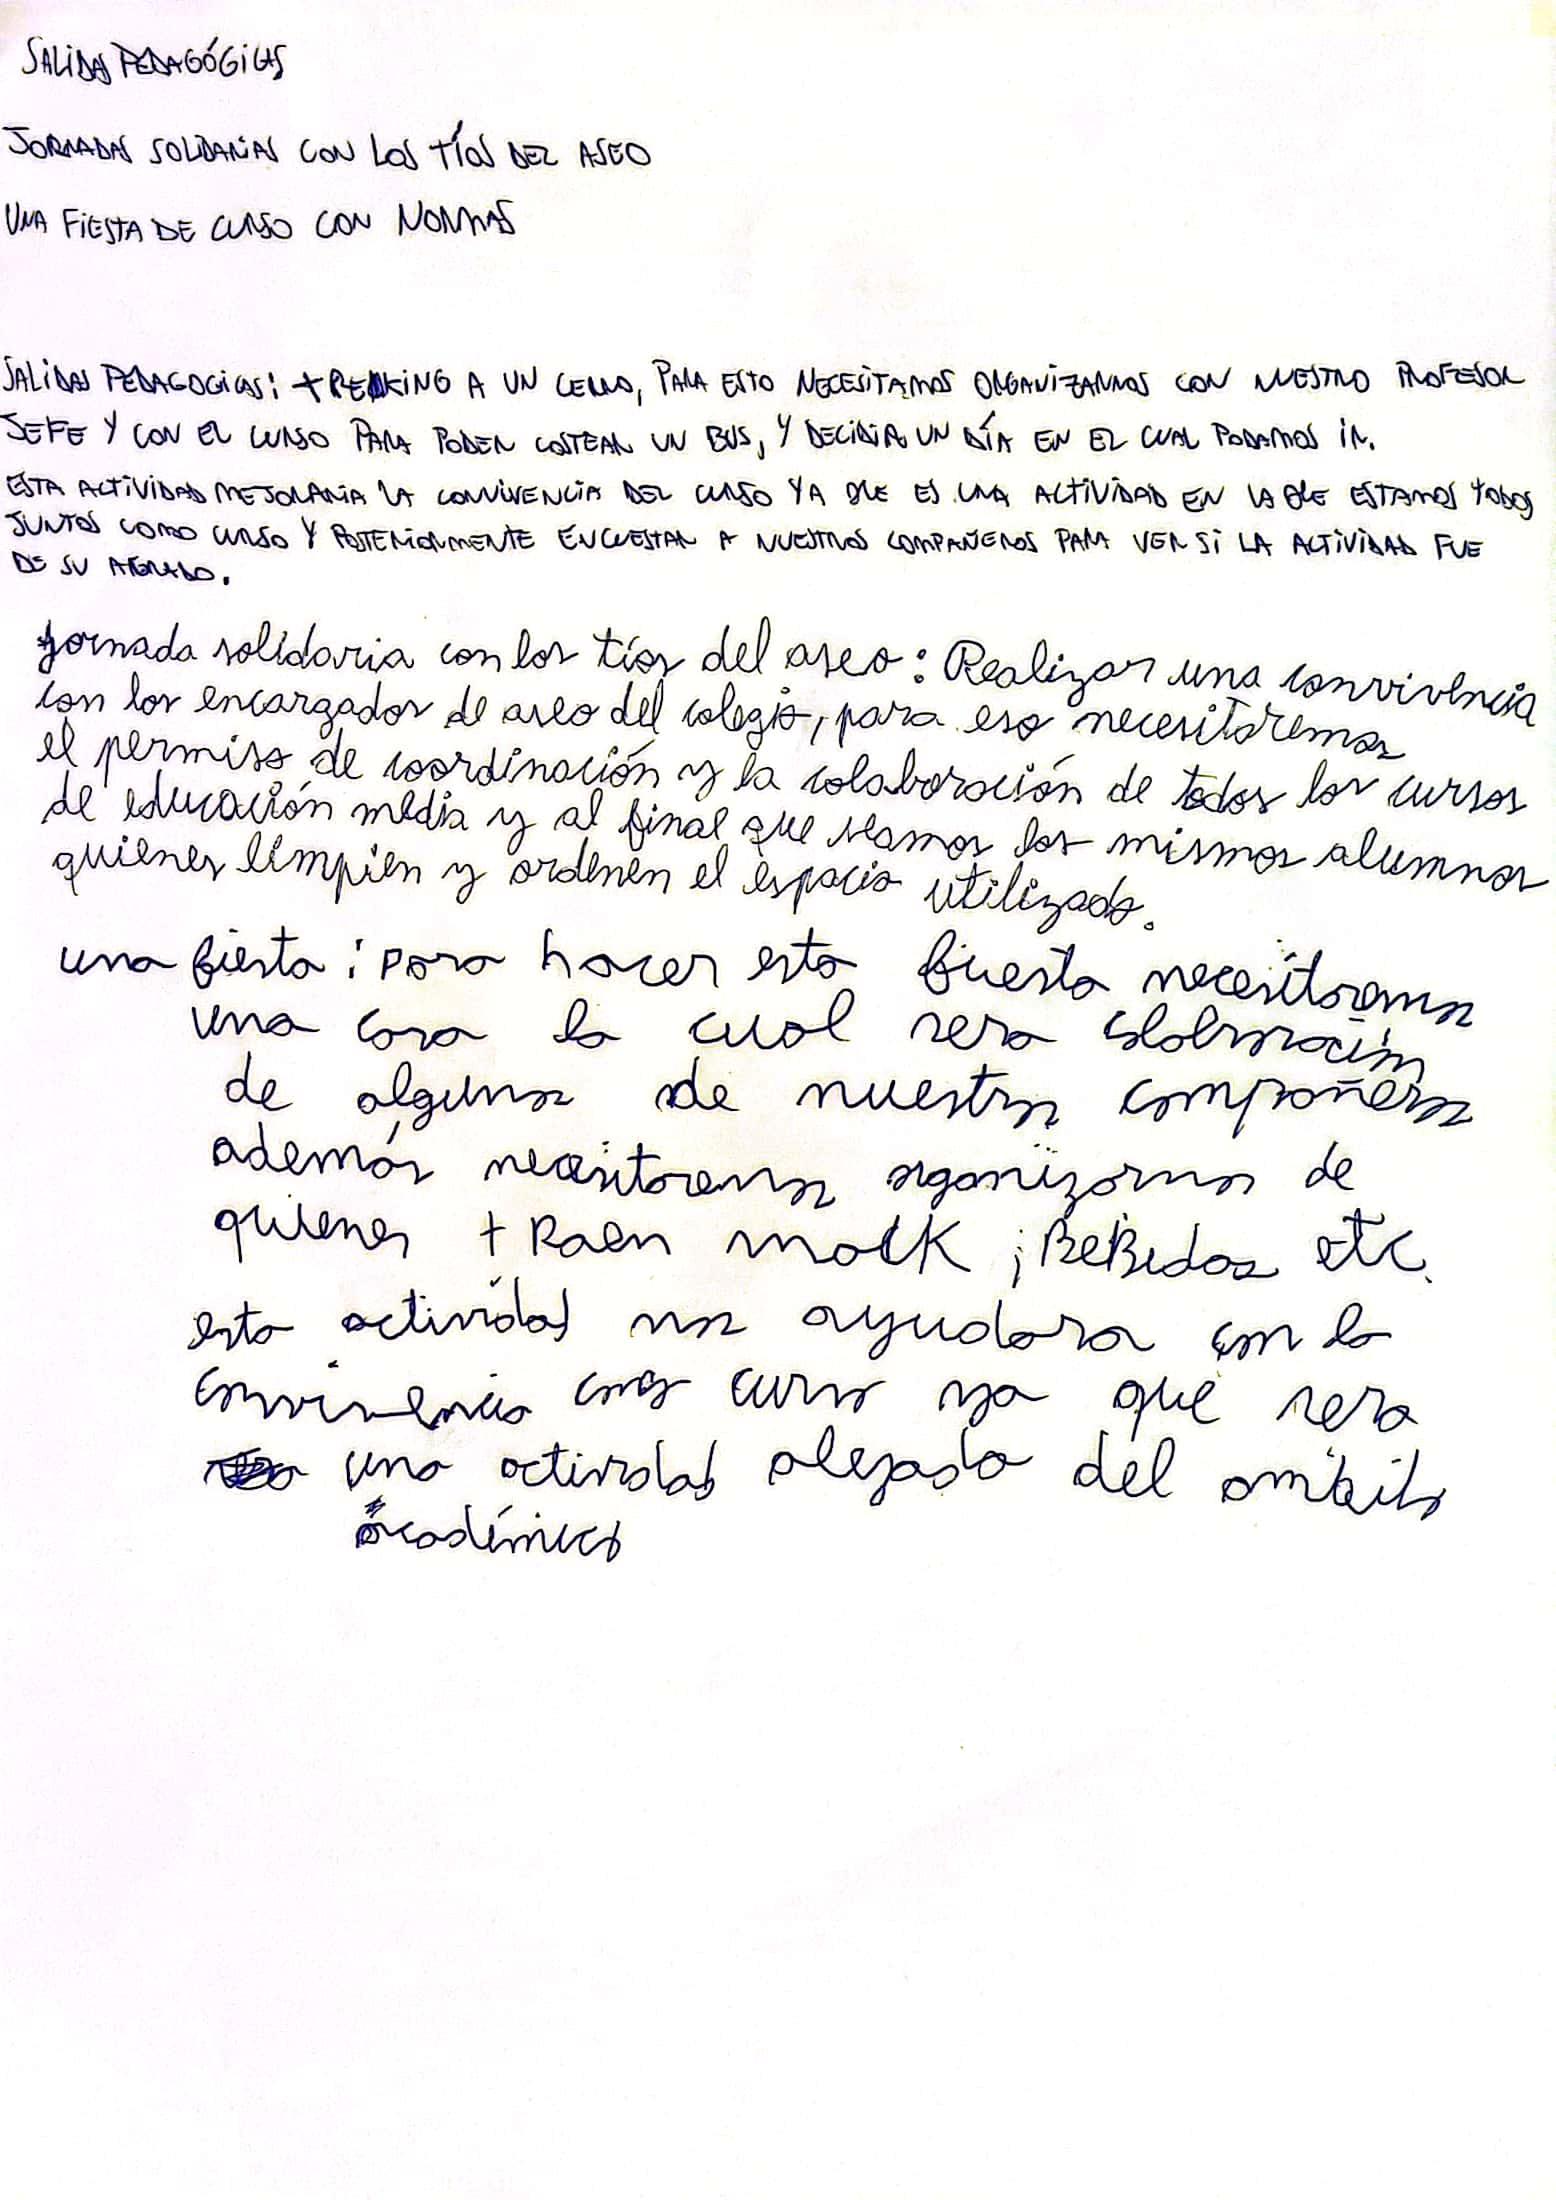 SALIDAS PEDAGÓGICAS
JORNADAS SOLIDARIAS CON LOS TÍOS DEL ASEO
UNA FIESTA DE CURSO CON NORMAS
SALIDAS PEDAGOGICAS: TREKKING A UN CERRO, PARA ESTO NECESITAMOS ORGANIZARNOS CON NUESTRO PROFESOR
JEFE Y CON EL CURSO PARA PODER COSTEAR UN BUS, Y DECIDIR UN DÍA EN EL CUAL PODAMOS IR.
ESTA ACTIVIDAD MEJORARIA LA CONVIVENCIA DEL CURSO YA QUE ES UNA ACTIVIDAD EN LA QUE ESTAMOS TODOS
JUNTOS COMO CURSO Y POSTERIORMENTE ENCUESTAR A NUESTROS COMPAÑEROS PARA VER SI LA ACTIVIDAD FUE
DE SU AGRADO.
Jornada solidaria con los tíos del aseo: Realizar una convivencia
con los encargados de aseo del colegio, para eso necesitaremos
el permiso de coordinación y la colaboración de todos los cursos
de educación media y al final que seamos los mismos alumnos
quienes limpien y ordenen el espacio utilizado.
una fiesta: para hacer esta fiesta necesitaremos
una casa la cual sera colaboración
de algunos de nuestros compañeros
además necesitaremos organizarnos de
quienes traen snack, BeBidas etc.
esta actividad nos ayudara con la
convivencia como curso ya que sera
una actividad alejada del ambito
académico